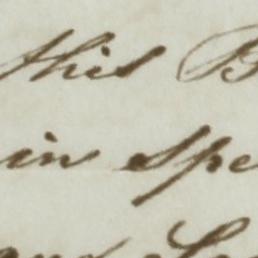 this B
in spe